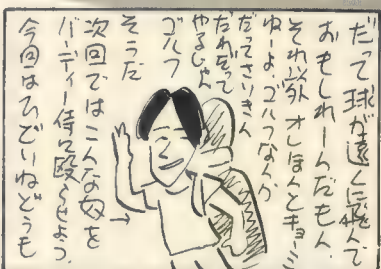 だって球が遠くに飛んで
おもしれーんだもん.
それ以外オレほんとキョーミ
ねーよ、ゴルフなんか
だってさいきん
だれだって
やるじゃん
ゴルフ
そうだ
次回ではこんな奴を
バーディー侍に殴らせよう.
今回はひどいねどうも